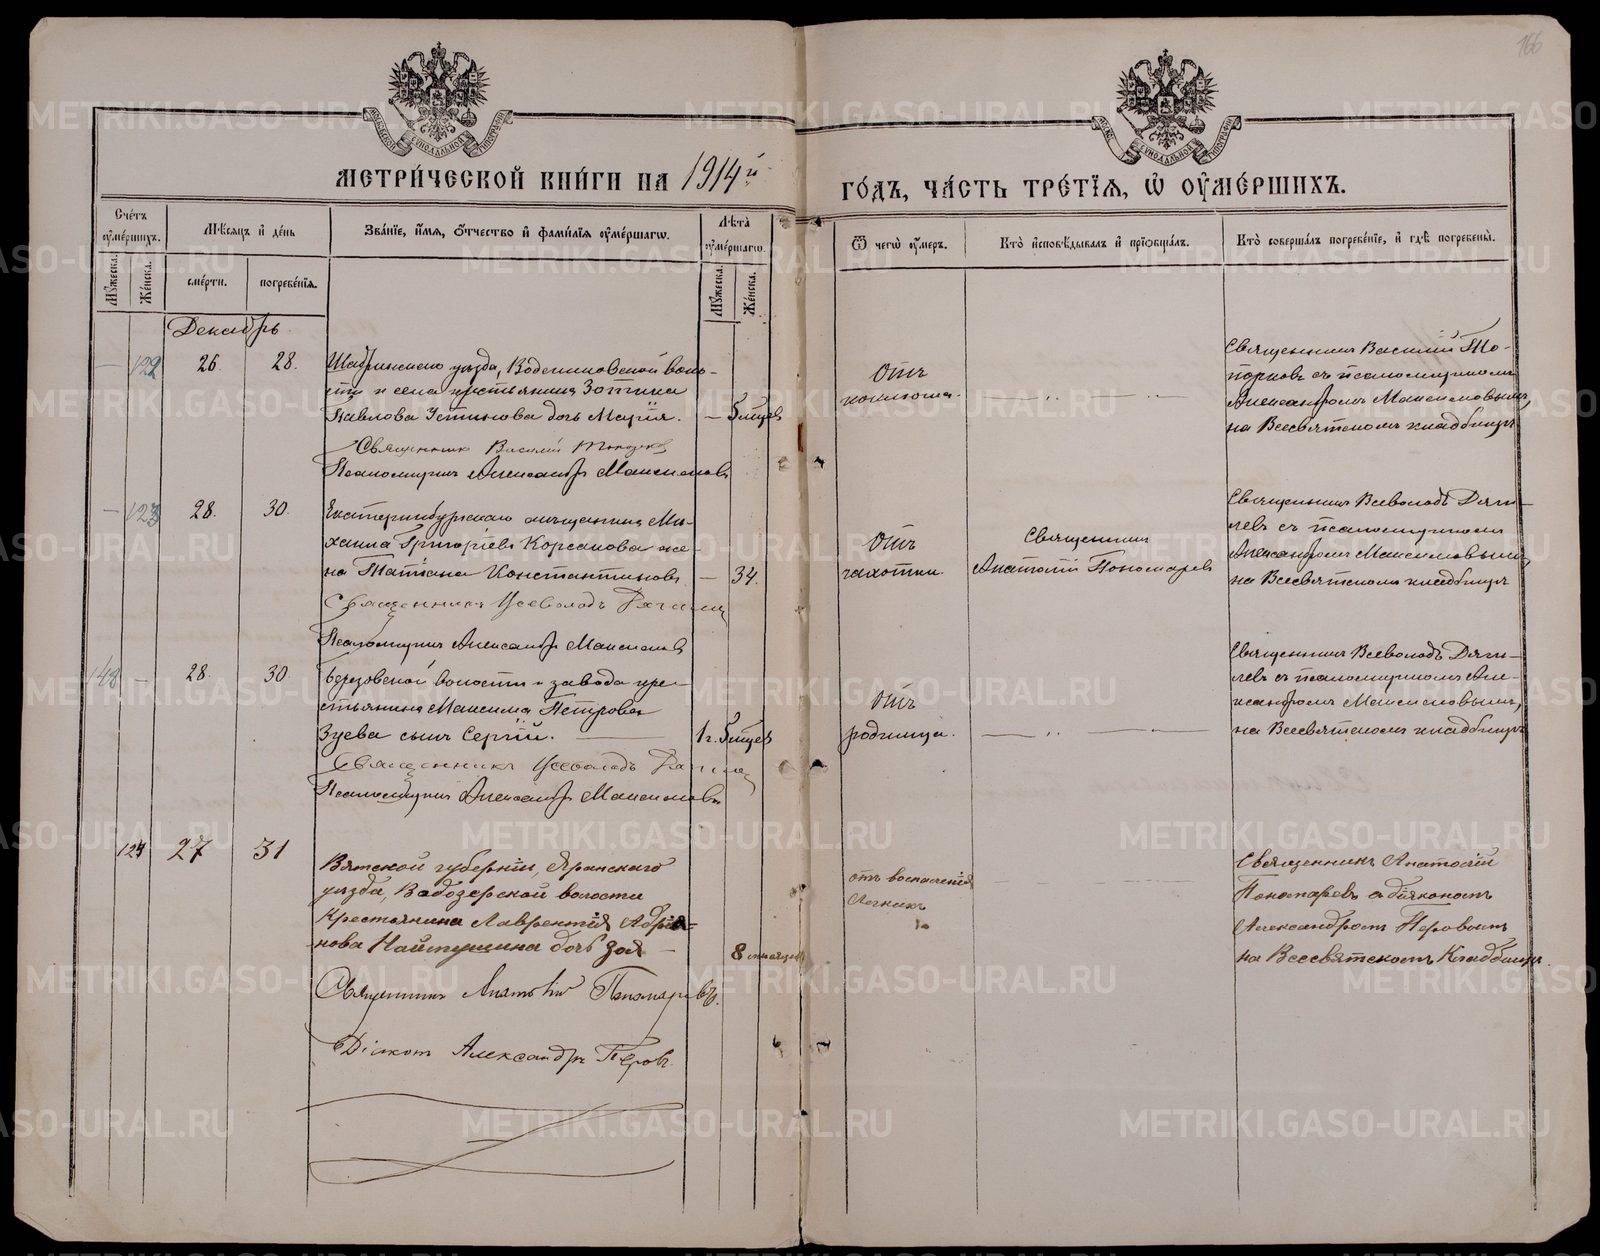 166
МЕТРИ́ЧЕСКОЙ КНИ́ГИ НА 1914й
ГО́ДЪ, ЧА́СТЬ ТРЕ́ТІѦ, Ѡ ОУМЕ́РШИХЪ.
Сче́тъ оуме́ршихъ.
Мѣ́сѧцъ и де́нь
Зва́нїе, и́мѧ, о́тчество и фами́лїѧ оуме́ршагѡ.
Лѣ́та оуме́ршагѡ.
Ѿ чегѡ̀ оу́меръ.
Кто̀ исповѣ́дывалъ и прїѡбща́лъ.
Кто̀ соверша́лъ погребе́нїе, и гдѣ̀ погребены̀.
Мꙋ́жеска.
Же́нска.
сме́рти.
погребе́нїѧ.
Мꙋ́жеска.
Же́нска.
Декабрь
— 122 26 28.
Шадринскаго уѣзда, Водениковской воло-
сти и села крестьянина Зотика
Павлова Устинова дочь Марія. — 5 мѣсцев
Священник Василий Топорков
Псаломщикъ Александръ Максимовъ
Отъ
коклюша.
Священникъ Василий То-
порковъ съ псаломщикомъ
Александромъ Максимовымъ,
на Всесвятскомъ кладбищѣ
— 123 28. 30.
Екатеринбургскаго мѣщанина Ми-
хаила Григоріева Корсакова же-
на Татіана Константинова. — 34.
Священникъ Всеволодъ Дягилев
Псаломщикъ Александръ Максимовъ
Отъ
чахотки.
Священникъ
Анатолій Пономаревъ
Священникъ Всеволодъ Дяги-
левъ съ псаломщикомъ
Александромъ Максимовымъ,
на Всесвятскомъ кладбищѣ
148 — 28. 30
Березовской волости и завода кре-
стьянина Максима Петрова
Зуева сынъ Сергій. 1 г. 5 мѣсцев
Священникъ Всеволодъ Дягилев
Псаломщикъ Александръ Максимовъ
Отъ
родимца.
Священникъ Всеволодъ Дяги-
левъ съ псаломщикомъ Але-
ксандромъ Максимовымъ,
на Всесвятскомъ кладбищѣ
124 27 31
Вятской губерніи, Яранскаго
уѣзда, Водозерской волости
Крестьянина Лаврентія Адріа-
нова Найтушина дочь Зоя — 8 мѣсяцевъ
Священникъ Анатолій Пономаревъ.
Діаконъ Александръ Перовъ.
отъ воспаленія
Легкихъ
Священникъ Анатолій
Пономаревъ с діакономъ
Александромъ Перовымъ
на Всесвятскомъ Кладбищѣ.
METRIKI.GASO-URAL.RU